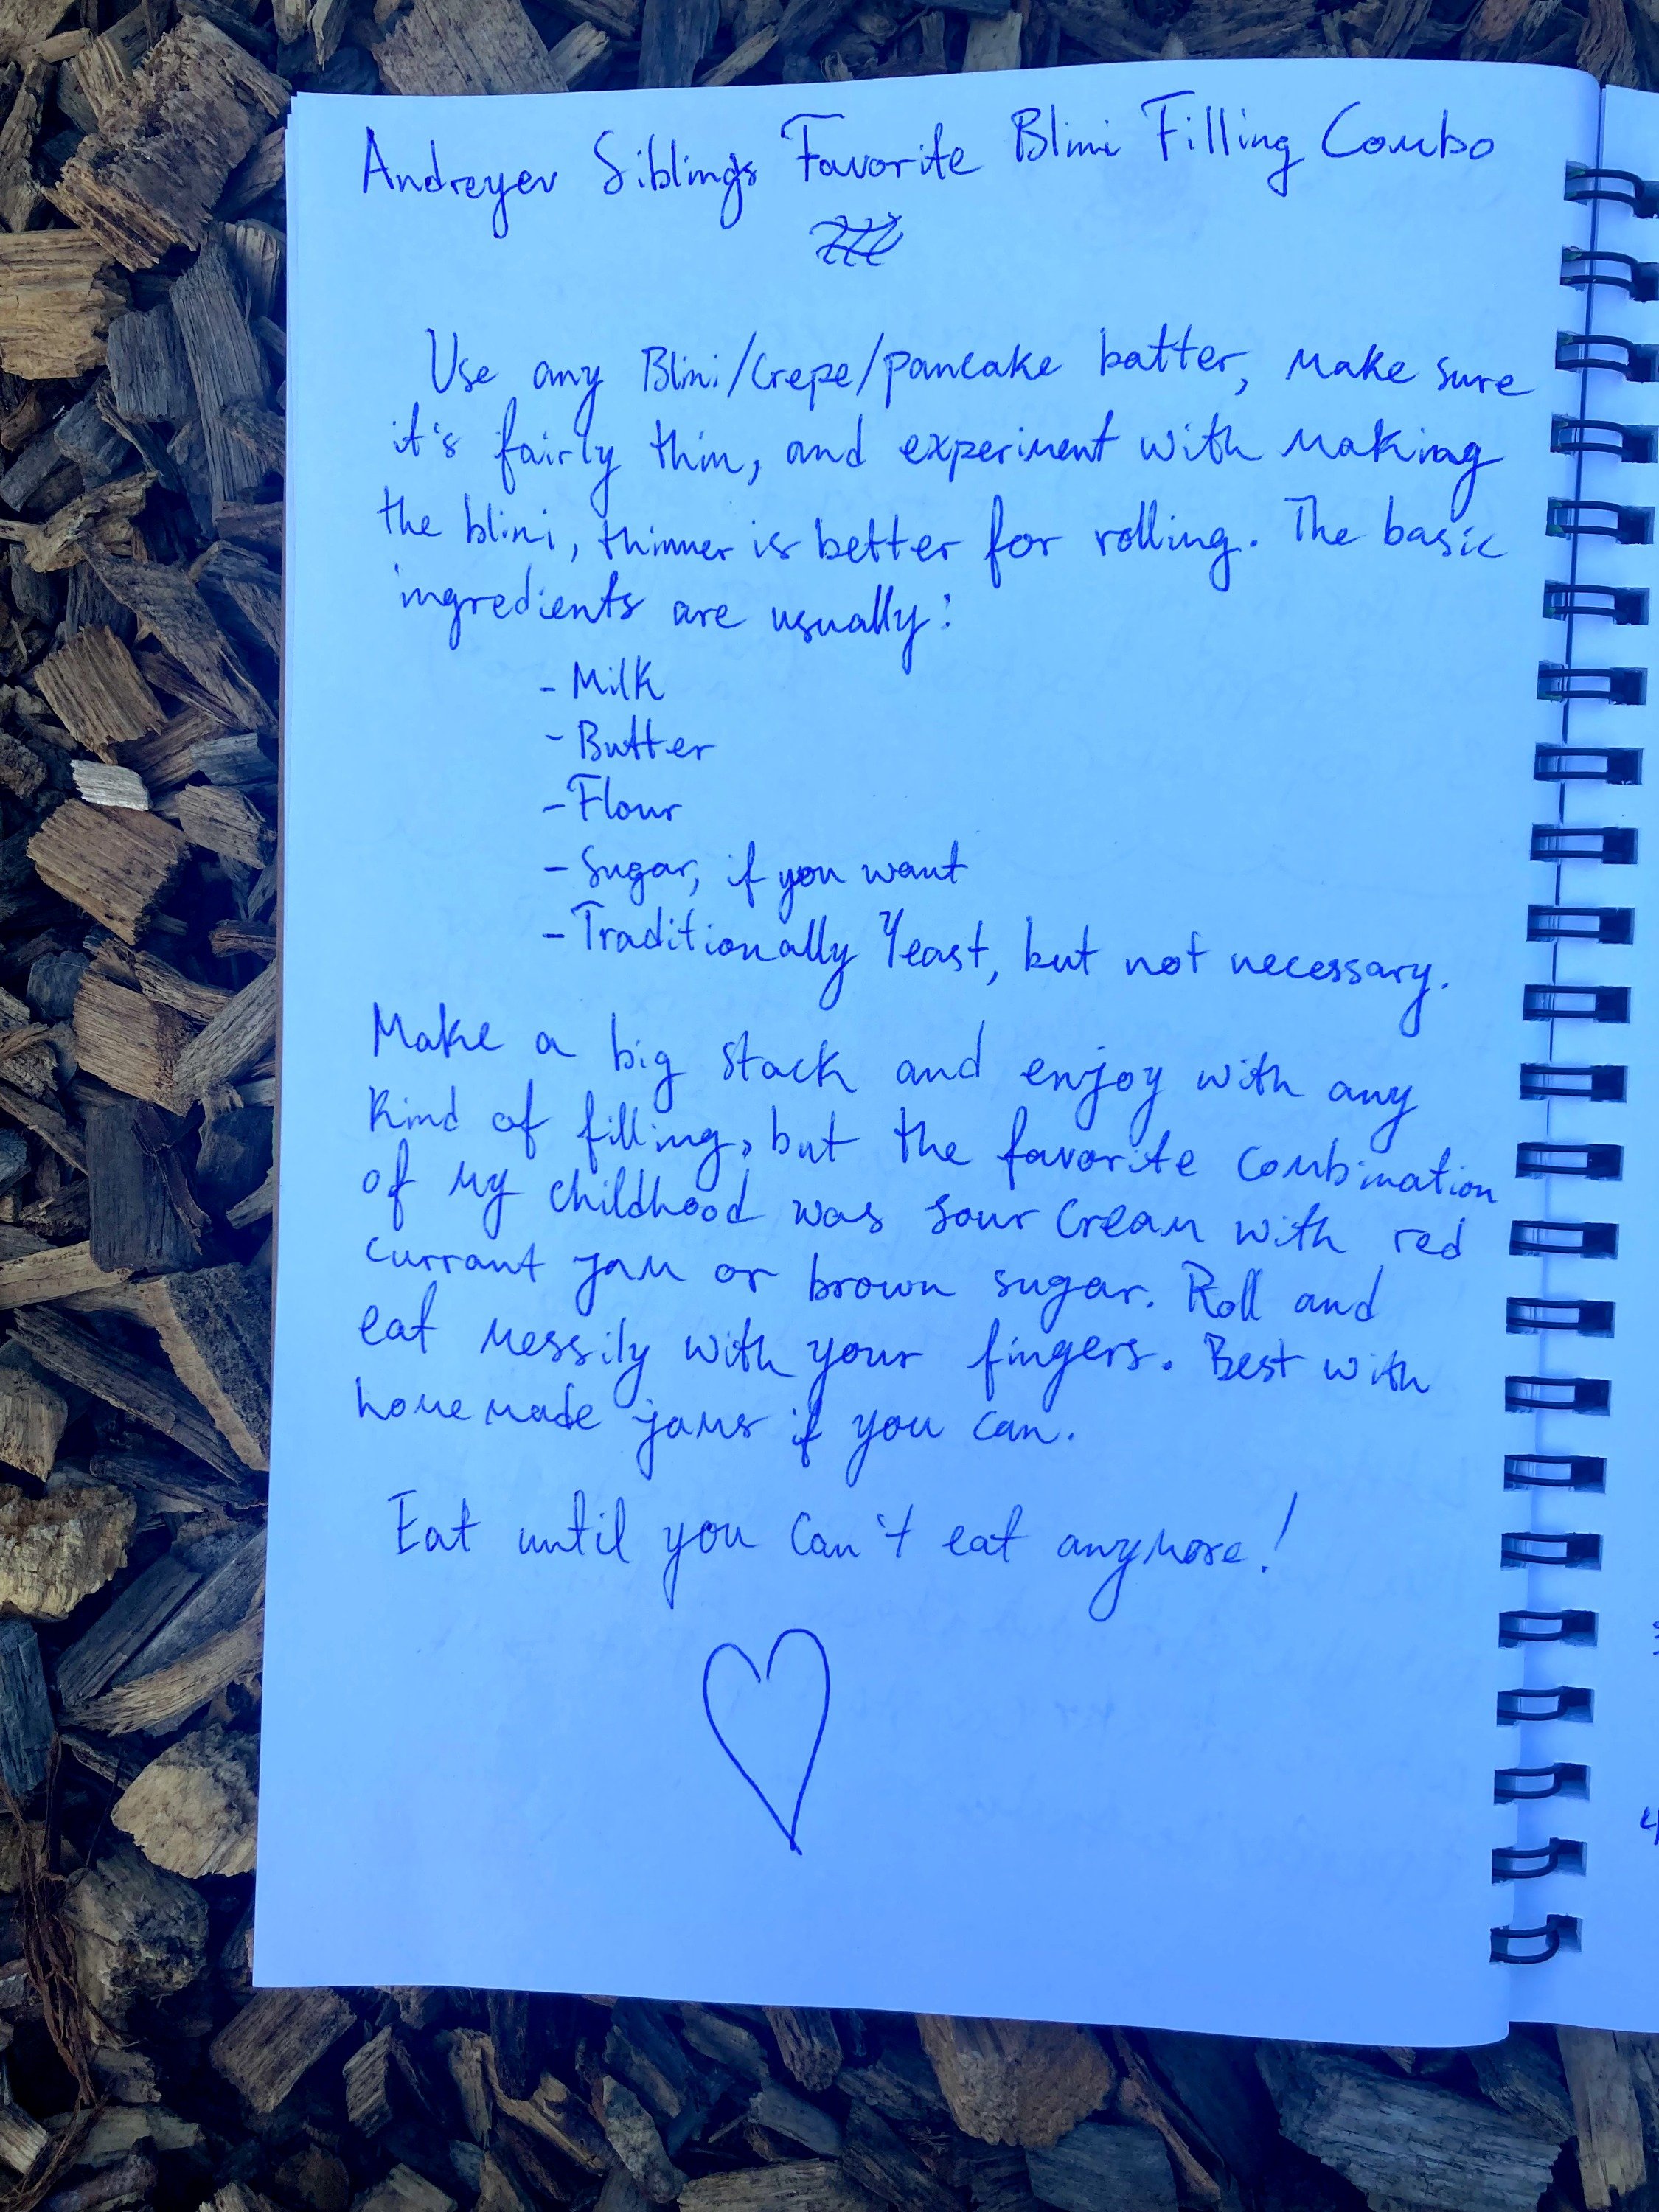 Andreyev Siblings Favorite Blini Filling Combo
Use any Blini/Crepe/pancake batter, make sure
it's fairly thin, and experiment with making
the blini, thinner is better for rolling. The basic
ingredients are usually:
- Milk
- Butter
- Flour
- Sugar, if you want
- Traditionally Yeast, but not necessary.
Make a big stack and enjoy with any
kind of filling, but the favorite combination
of my childhood was sour cream with red
currant jam or brown sugar. Roll and
eat messily with your fingers. Best with
homemade jams if you can.
Eat until you can't eat anymore!